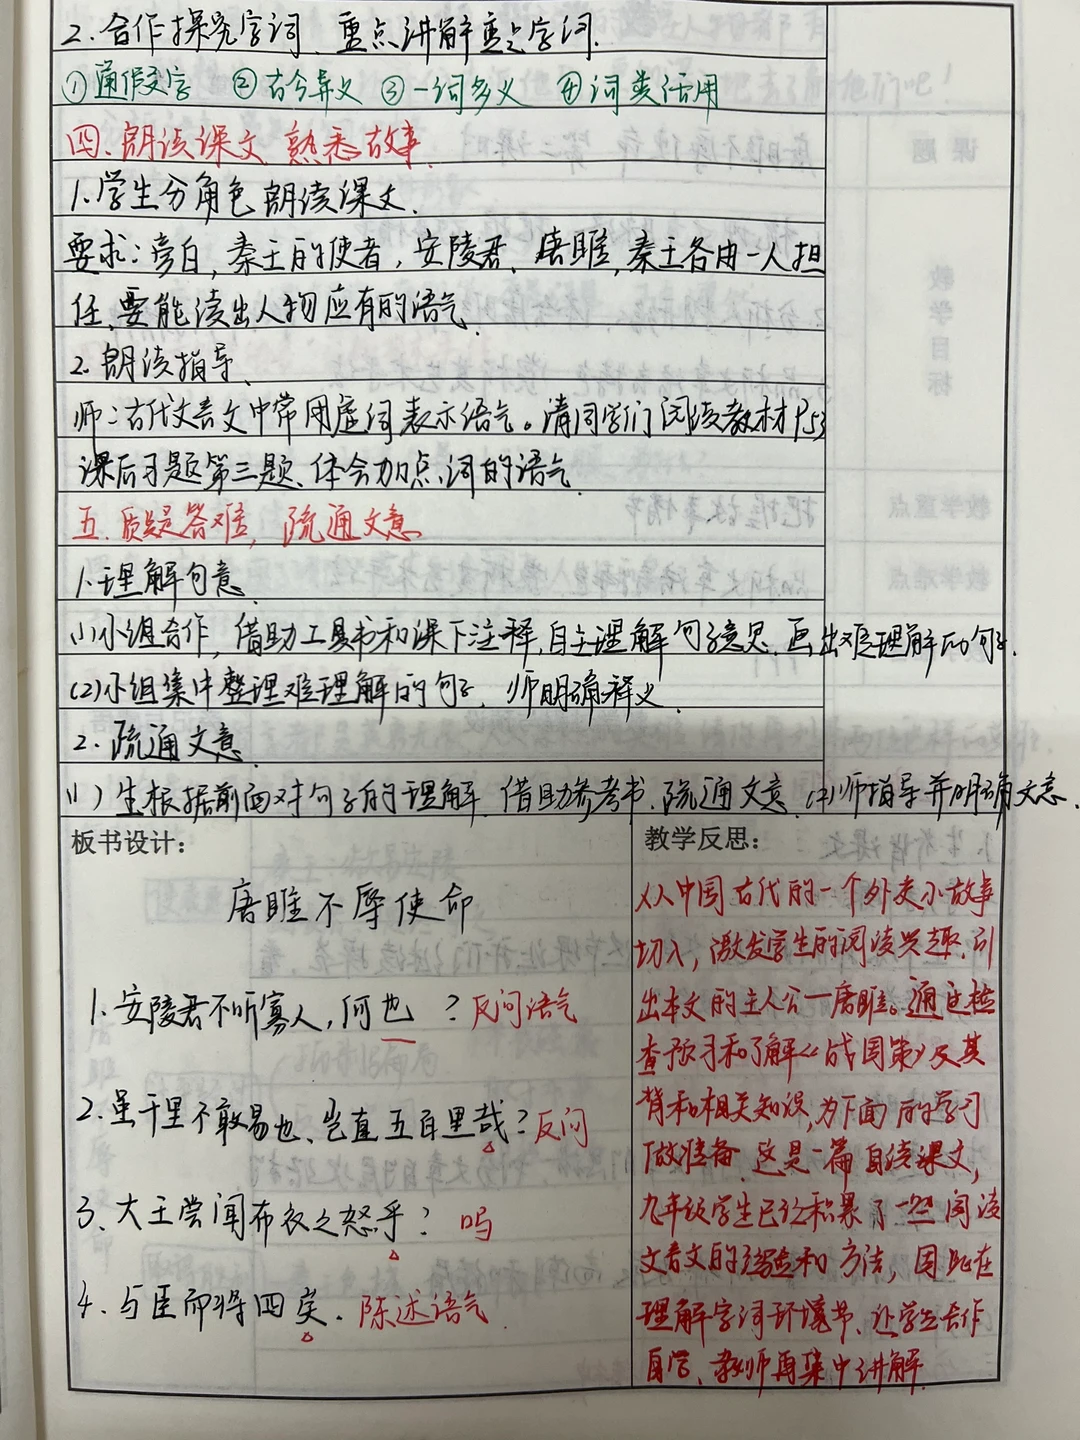 2.合作探究字词、重点讲解重点字词.
①通假文字 ②古今异义 ③一词多义 ④词类活用
四、朗读课文、熟悉故事.
1.学生分角色朗读课文.
要求：旁白，秦王的使者，安陵君、唐雎，秦王各由一人担
任、要能读出人物应有的语气.
2.朗读指导、
师：古代文言文中常用虚词表示语气。请同学们阅读教材P53
课后习题第三题、体会加点词的语气.
五、质疑答难，疏通文意
1.理解句意.
(1)小组合作，借助工具书和课下注释，自主理解句子意思.画出难理解的句子.
(2)小组集中整理难理解的句子，师明确释义.
2.疏通文意.
(1)生根据前面对句子的理解.借助参考书.疏通文意.(2)师指导并明确文意.
板书设计：
唐雎不辱使命
1.安陵君不听寡人，何也？反问语气
2.虽千里不敢易也、岂直五百里哉？反问
3、大王尝闻布衣之怒乎？吗
4.与臣而将四矣.陈述语气.
教学反思：
从中国古代的一个外交小故事
切入，激发学生的阅读兴趣.引
出本文的主人公—唐雎。通过检
查预习和了解《战国策》及其
背和相关知识，为下面的学习
做准备.这是一篇自读课文，
九年级学生已经积累了一些阅读
文言文的经验和方法，因此在
理解字词环境节、让学生合作
自学、教师再集中讲解.